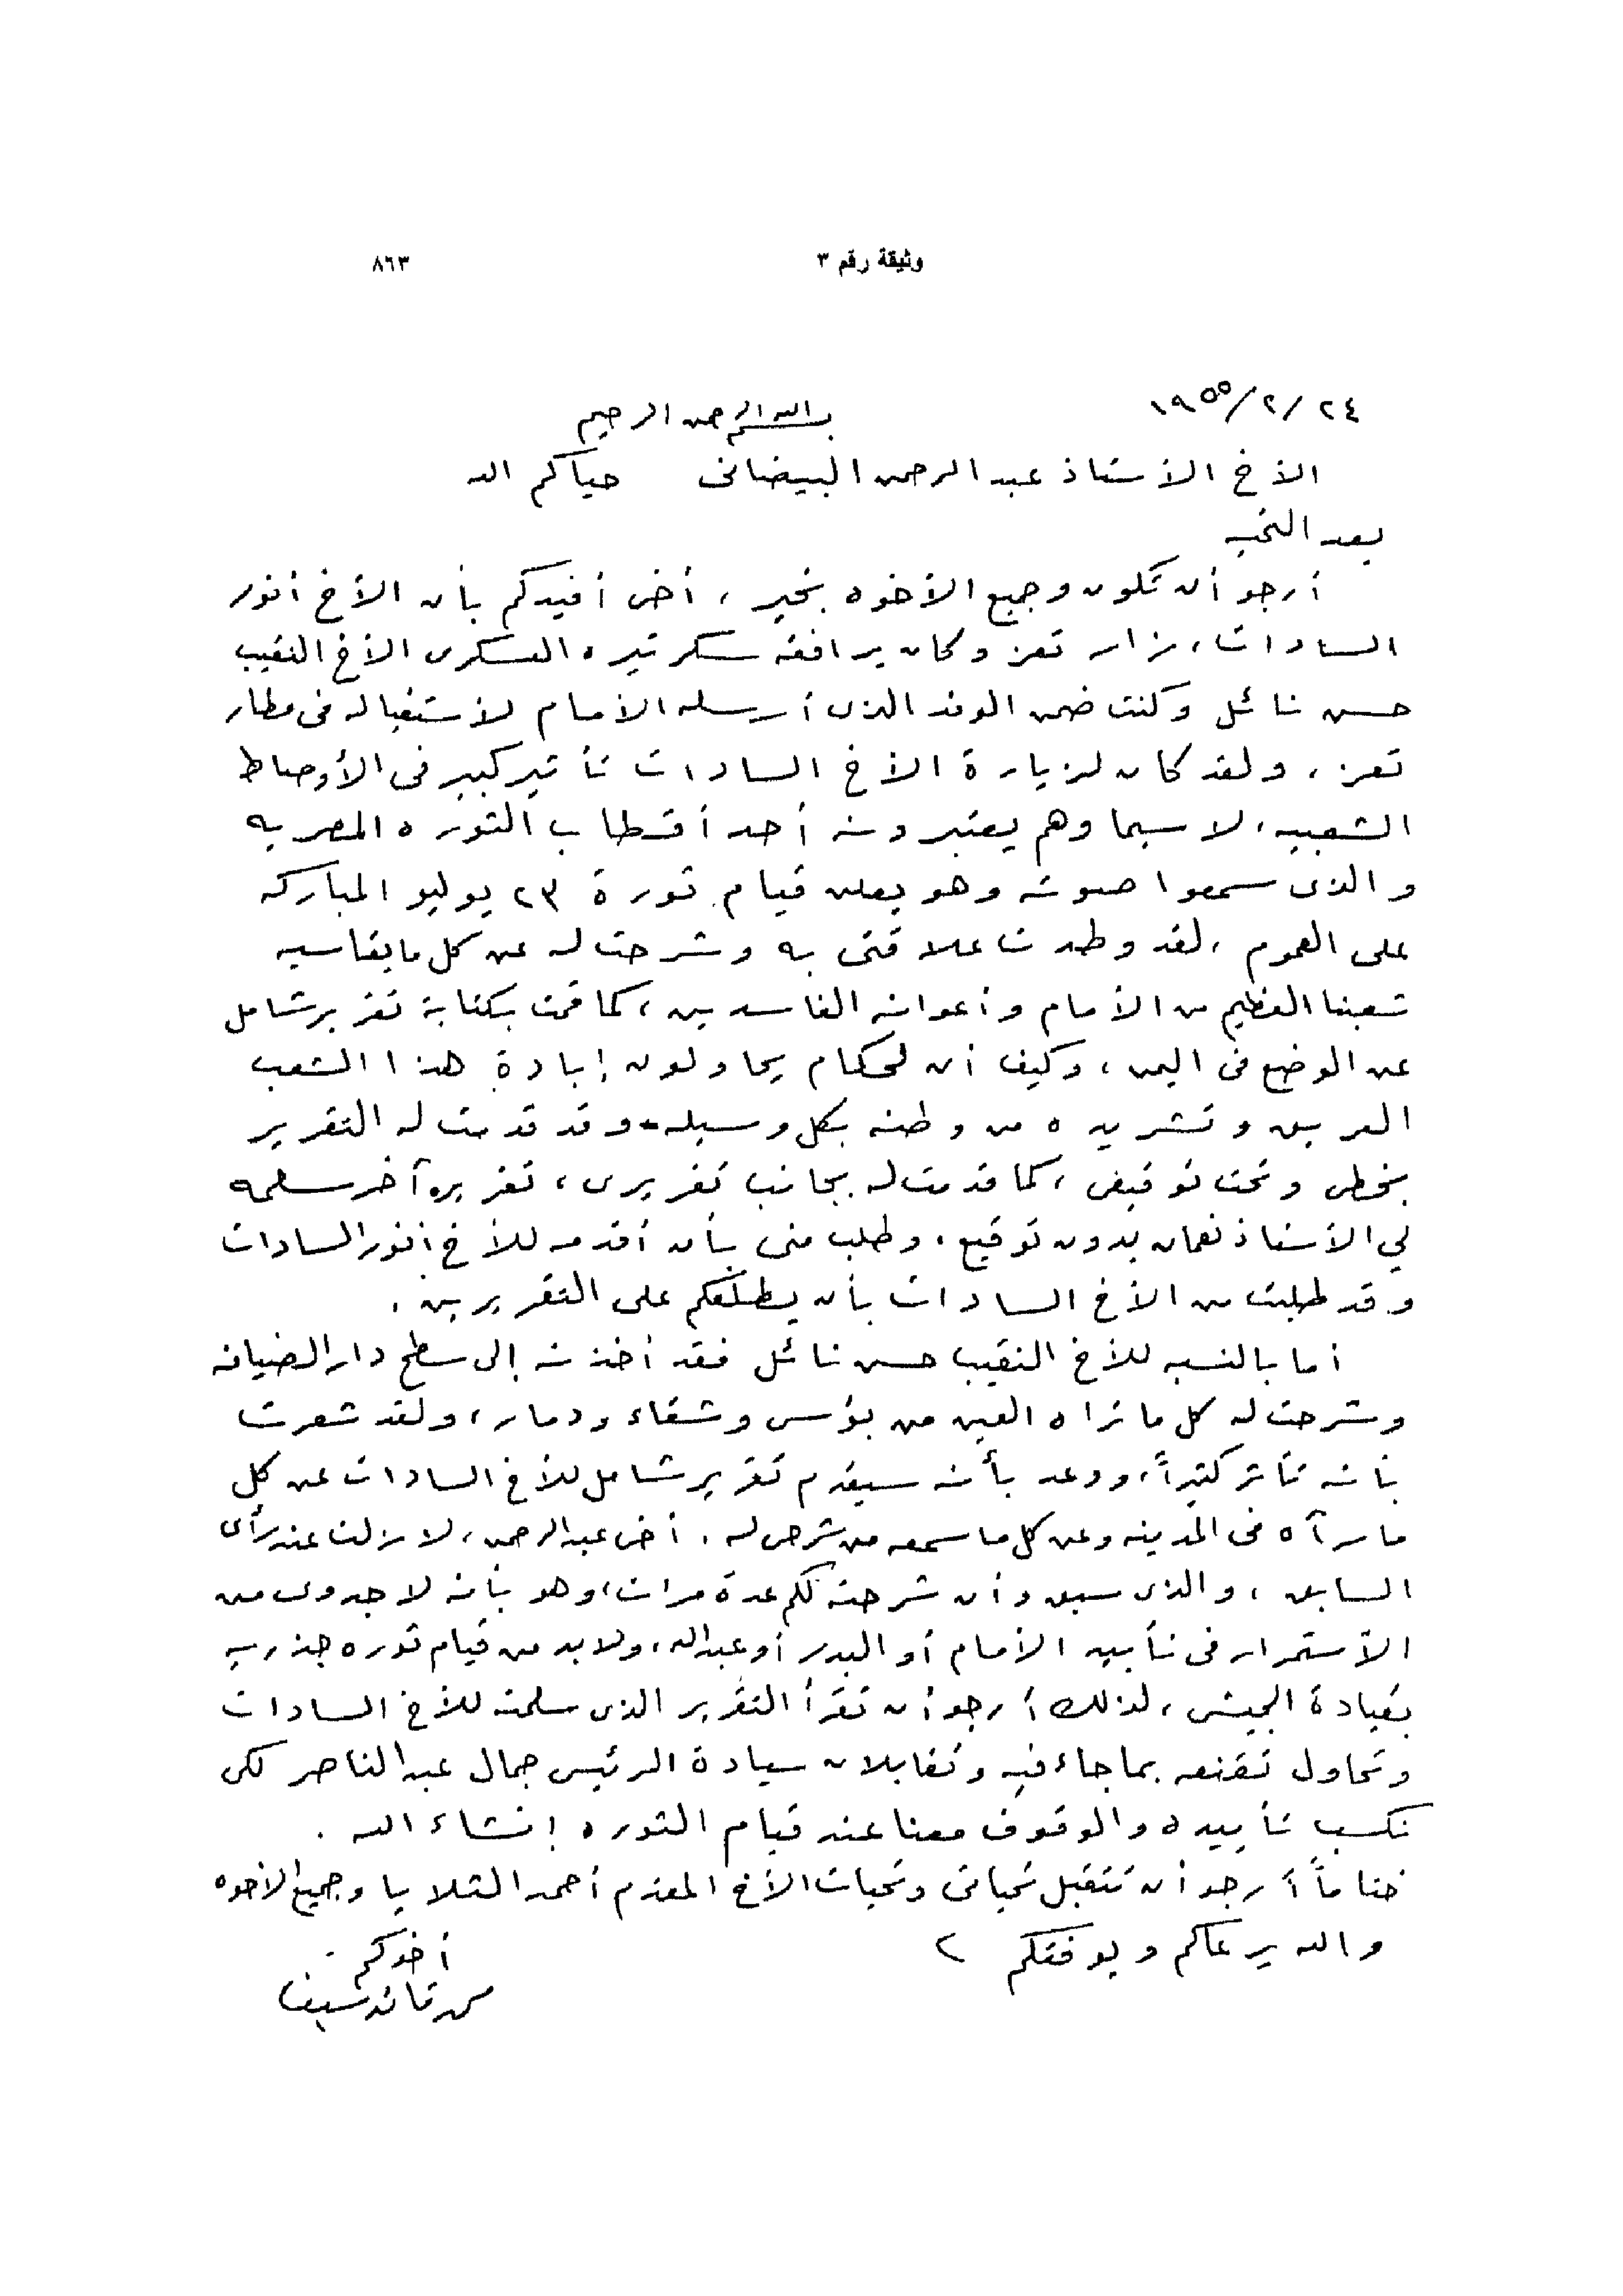 وثيقة رقم ٣ ٨٦٣
٢٤/٢/١٩٥٥
بسم الله الرحمن الرحيم
الأخ الأستاذ عبد الرحمن البيضانى حياكم الله
بعد التحيه
أرجو أن تكون وجميع الأخوه بخير ، أخى أفيدكم بأن الأخ أنور
السادات ، زار تعز وكان يرافقه سكرتيره العسكرى الأخ النقيب
حسن نائل وكنت ضمن الوفد الذى أرسله الأمام لأستقباله فى مطار
تعز ، ولقد كان لزيارة الأخ السادات تأثير كبير فى الأوصاط
الشعبيه ، لا سيما وهم يعتبرونه أحد أقطاب الثوره المصريه
والذى سمعوا صوته وهو يعلن قيام ثورة ٢٣ يوليو المباركه
على العموم ، لقد وطدت علاقتى به وشرحت له عن كل ما يقاسيه
شعبنا العظيم من الأمام وأعوانه الفاسدين ، كما قمت بكتابة تقرير شامل
عن الوضع فى اليمن ، وكيف أن لحكام يحاولون إبادة هذا الشعب
العريق وتشريده من وطنه بكل وسيله - وقد قدمت له التقرير
بخطى وتحت توقيعى ، كما قدمت له بجانب تقريرى ، تقريره آخر سلمه
لي الأستاذ نعمان بدون توقيع ، وطلب منى بأن أقدمه للأخ أنور السادات
وقد طلبت من الأخ السادات بأن يطلعكم على التقريرين .
أما بالنسبه للأخ النقيب حسن نائل فقد أخذته إلى سطح دار الضيافه
وشرحت له كل ما تراه العين من بؤس وشقاء ودمار ، ولقد شعرت
بأنه تأثر كثيراً ، ووعد بأنه سيقدم تقرير شامل للأخ السادات عن كل
ما رآه فى المدينه وعن كل ما سمعه من شرحى له . أخى عبد الرحمن ، لا زلت عند رأى
السابق ، والذى سبق وأن شرحته لكم عدة مرات ، وهو بأنه لا جدوى من
الأستمرار فى تأييد الأمام أو البدر أو عبد الله ، ولا بد من قيام ثوره جذريه
بقيادة الجيش ، لذلك أرجو أن تقرأ التقرير الذى سلمته للأخ السادات
وتحاول تقنعه بما جاء فيه وتقابلان سيادة الرئيس جمال عبد الناصر لكى
نكسب تأييده والوقوف معنا عند قيام الثوره إنشاء الله .
ختاماً أرجو أن تتقبل تحياتى وتحيات الأخ المقدم أحمد الثلايا وجميع الأخوه
والله يرعاكم ويوفقكم
أخوكم
قائد سيف